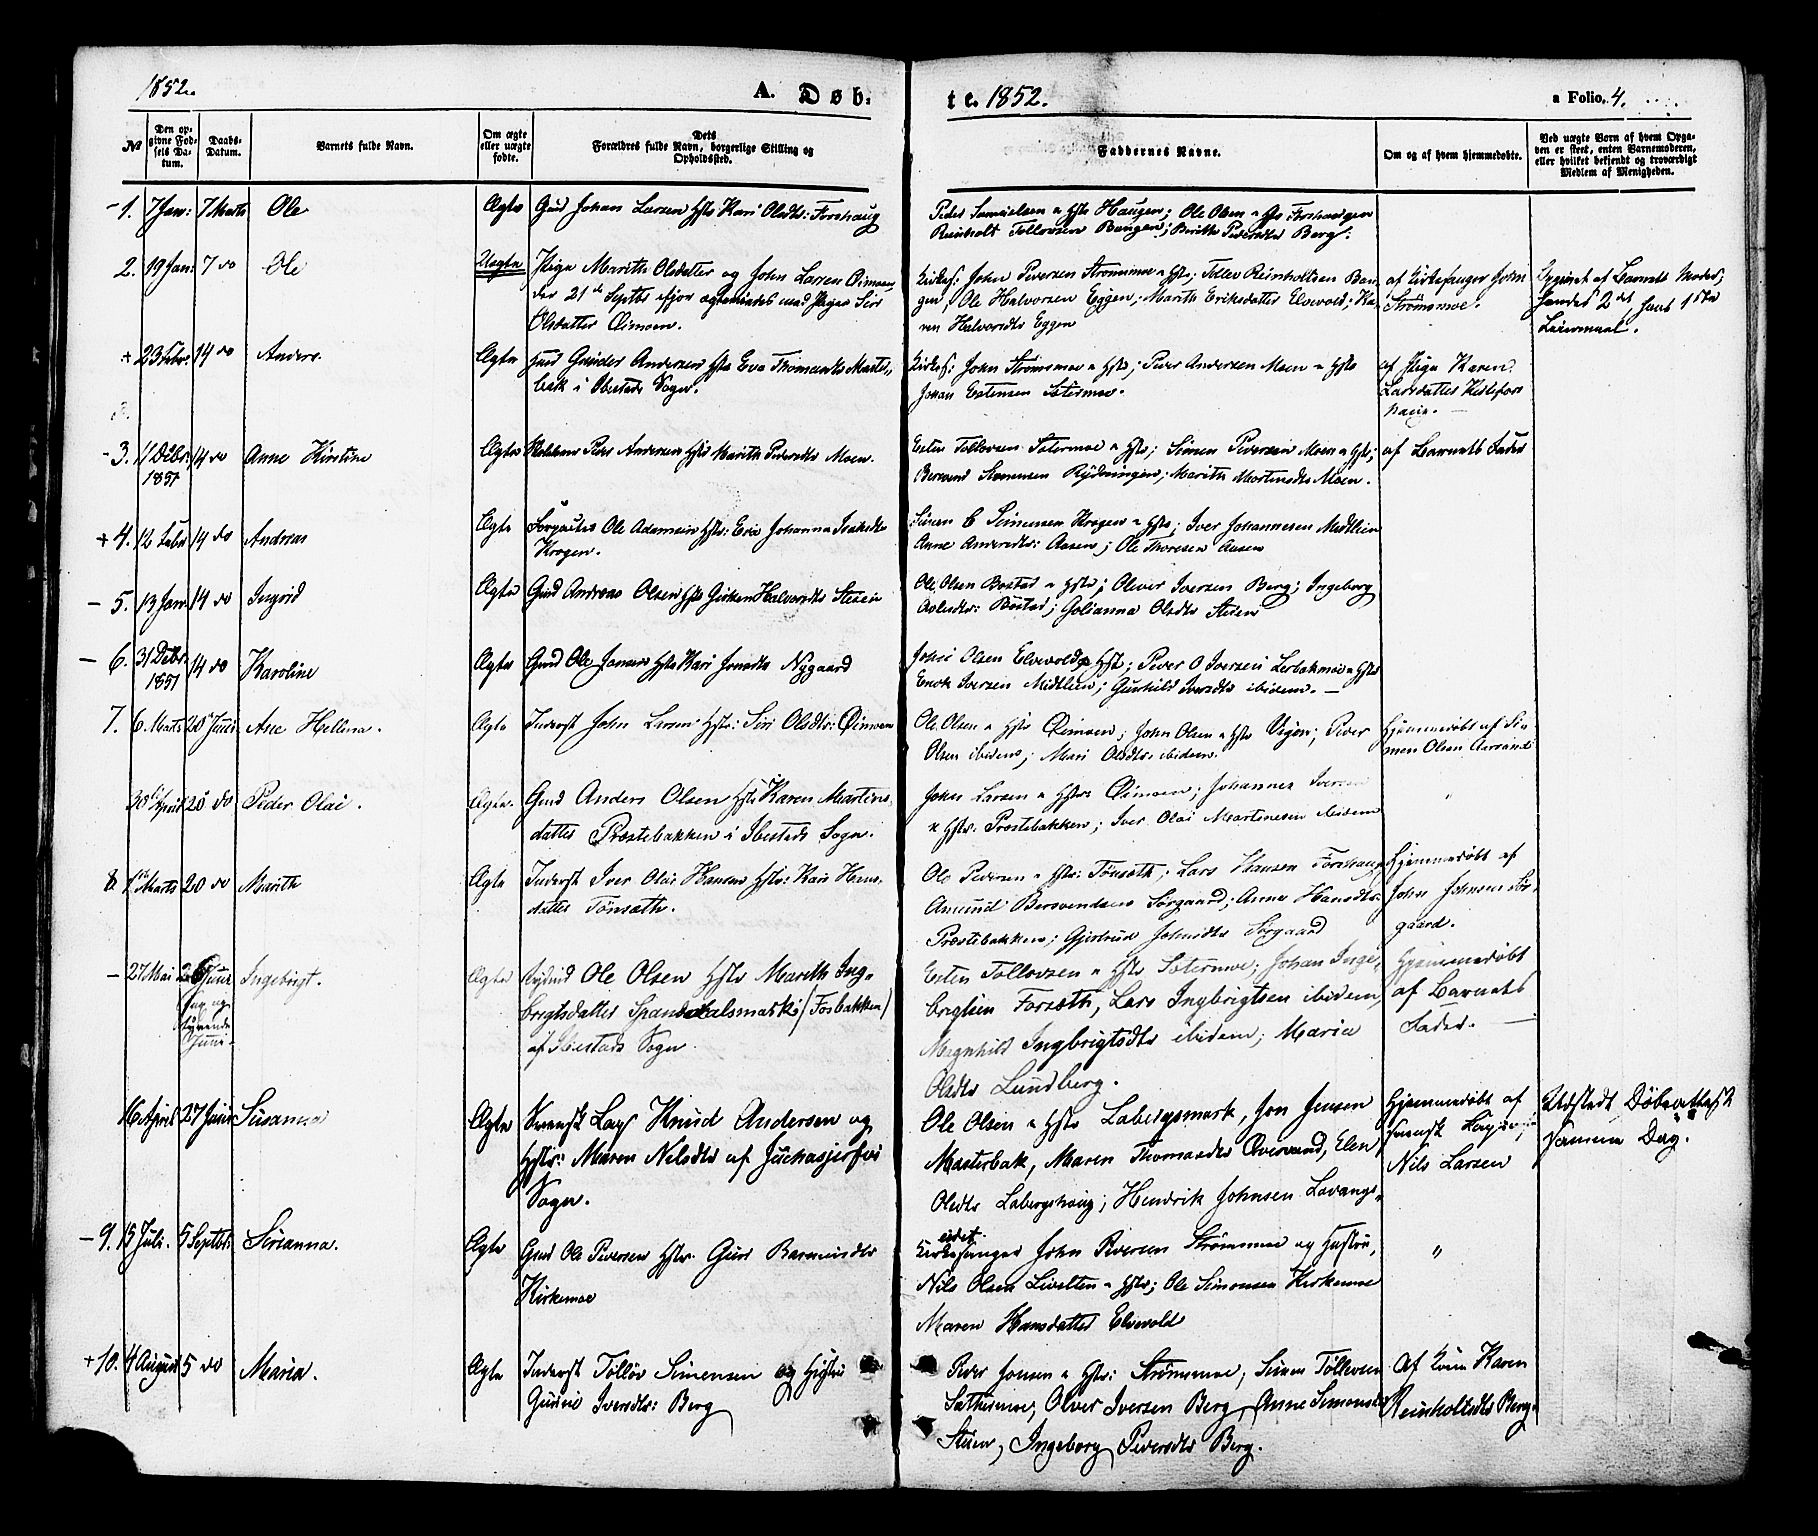 1852.
A. Døb-
te. 1852.
a Folio. 4.
№
Den op-
givne Fød-
sels Da-
tum.
Daabs-
Datum.
Barnets fulde Navn.
Om ægte
eller uægte
fødte.
Dets
Forældres fulde Navn, borgerlige Stilling og
Opholdssted.
Faddernes Navne.
Om og af hvem hjemmedøbte.
Ved uægte Børn af hvem Opga-
ven er skeet, enten Barnemoderen,
eller hvilket bekjendt og troværdigt
Medlem af Menigheden.
- 1. 7 Jan: 7 Marts Ole Ægte Gmd Johan Larsen Hstr Kari Olsdtr: Forshaug
Peder Samuelsen n Hstr Haugen; Ole Olsen n Hstr Forshaugen
Reinholt Tollovsen Baugen; Berith Pedersdtr Berg.
2. 19 Jan: 7 do Ole Uægte Pige Marith Olsdatter og John Larsen Qimoen
der 21de Septbr ifjor ægteviedes med Pigen Siri
Olsdatter Qimoen.
Kirkes: John Peversen Strømsmoe n Hstr; Tollev Reinholtsen Ban-
gen, Ole Halvorsen Eggen; Marith Eriksdatter Elvevold; Ka-
ren Halvorsdtr Eggen
af Kirkesanger John
Strømsmoe.
Opgivet af Barnets Moder;
hendes 2det, hans 1ste
Leiermaal.
+ 23 Febr: 14 do Anders. Ægte Gmd Gunder Andersen Hstr Eva Thomasdtr Master-
bak i Ibestads Sogn.
Kirkes: John Strømsmoe n Hstr; Pever Andersen Moen n Hstr
Johan Estensen Sætermoe.
af Pige Karen
Larsdatter Kistefos-
haug.
- 3. 11 Decbr: 1851 14 do Anne Kirstine Ægte Peder Andersen Hstr Marith Pedersdtr Moen.
Esten Tollovsen Sætermoe n Hstr; Simen Peversen Moen n Hstr;
Berend Simensen Rydningen; Marith Mortensdtr Moen.
af Barnets Fader
+ 4. 12 Febr 14 do Andreas Ægte Ole Adamsen Hstr: Eva Johanna Isaksdtr
Krogen.
Simen C Simensen Krogen n Hstr; Iver Johannesen Midtlien
Anne Andersdtr: Aasen; Ole Thoresen Aasen
- 5. 13 Jan: 14 do Ingrid Ægte Gmd Andreas Olsen Hstr Halvorsdtr Steien
Ole Olsen Bostad n Hstr; Oliver Iversen Berg; Ingeborg
Bostad; Golianna Olsdtr Steien
- 6. 31 Decbr: 1851 14 do Karoline Ægte Gmd Ole Jonsen Hstr Kari Jonsdtr Nygaard
John Olsen Elvevold n Hstr; Pever O Iversen Lerbakmoe n Hstr
Enok Iversen Midtlien; Gunhild Iversdtr ibidem. —
7. 6. Marts 20de Juni Ane Hellena. Ægte Inderst John Larsen Hstr: Siri Olsdtr: Qimoen
Ole Olsen n Hstr Qimoen; John Olsen n Hstr Vigen; Pever
Olsen ibidem; Mari Olsdtr: ibidem.
Hjemmedøbt af Si-
men Olsen
30te April 20 do Peder Olai. Ægte. Gmd Anders Olsen Hstr Karen Martins-
datter Præstebakken i Ibestads Sogn.
John Larsen n Hstr: Qimoen; Johannes Iversen
n Hstr: Præstebakken; Iver Olai Martinesen ibidem
"
8. 1ste Marts 20 do Marith Ægte Inderst Iver Olai Hansen Hstr: Kari Hans-
datter Tönsæth.
Ole Pedersen n Hstr: Tönsæth; Lars Hansen Forshaug
Amund Bersvendsen Sørgaard; Anne Hansdtr:
Præstebakken; Gjertrud Johnsdtr Sørgaard
Hjemmedøbt af
John Johnsen Sør-
gaard.
- 27 Mai Juni Ingebrigt. Ægte Ole Olsen Hstr Marith Inge-
brigtsdatter Spansdalsmark (Fosbakken)
af Ibestads Sogn.
og
tyvende
Juni.
Esten Tollovsen n Hstr Sætermoe; Johan Inge-
brigtsen Forsæth, Lars Ingbrigtsen ibidem,
Magnhild Ingbrigtsdtr ibidem; Maria
Olsdtr Lundberg.
Hjemmedøbt
af Barnets
Fader.
16 April 27 Juni Susanna Ægte Svensk Lap Knud Andersen og
Hstr: Maren Nilsdtr af Juckasjerfvi
Sogn.
Ole Olsen n Hstr Labergsmark, Jon Jensen
Masterbak, Maren Thomasdtr Qversund, Elen
Olsdtr Labergshaug; Hendrik Johnsen Lavangs-
eidet.
Hjemmedøbt af
svensk Lap
Nils Larsen
Udstedt Døbeattest
samme Dag.
- 9. 15 Juli. 5 Septbr: Sirianna. Ægte Gmd Ole Peversen Hstr: Guri
Kirkemoe
Kirkesanger John Peversen Strømsmoe og Hustru,
Nils Olsen Livelten n Hstr; Ole Simonsen Kirkemoe
Maren Hansdatter Elvevold
"
+ 10. 4 August 5 do Maria. Ægte Inderst Tollov Simensen og Hustru
Iversdtr: Berg
Peder Jonsen n Hstr: Strømsmoe; Simon Tollevsen
Sæthermoe, Oliver Iversen Berg, Anne Simonsdtr
Steien, Ingeborg Peversdtr Berg.
Af Karen
Reinholtsdtr Berg.